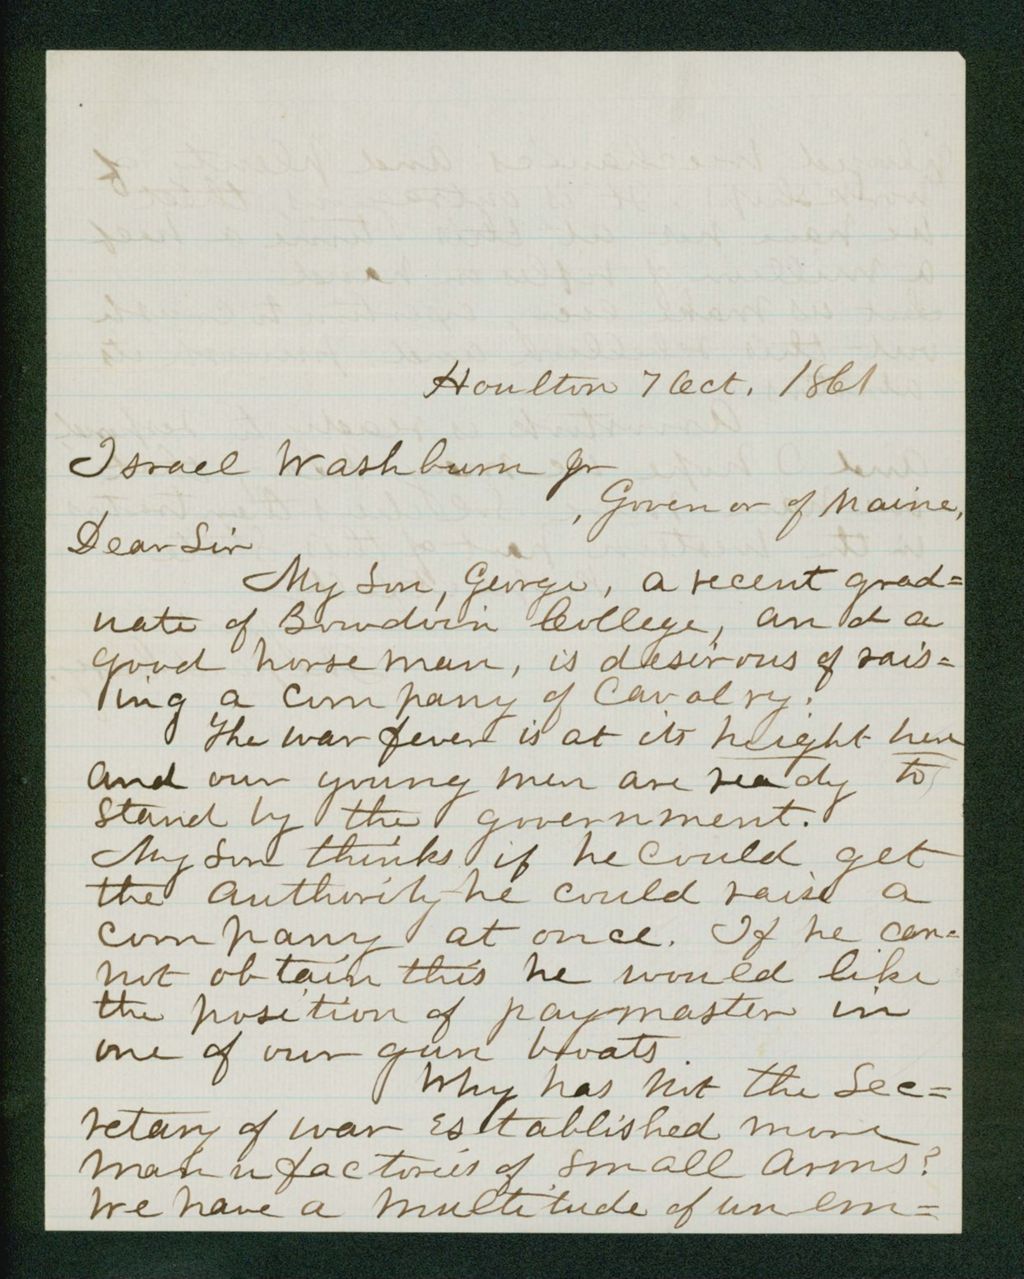 Houlton 7 Oct. 1861
Israel Washburn Jr
, Govenor of Maine,
Dear Sir
My Son, George, a recent grad=
uate of Bowdoin College, and a
good horseman, is desirous of rais=
ing a company of Cavalry.
The war fever is at its height here
and our young men are ready to
stand by the government.
My Son thinks if he could get
the authority he could raise a
company at once. If he can=
not obtain this he would like
the position of paymaster in
one of our gun boats.
Why has not the Sec=
retary of war established more
manufactories of small arms?
We have a multitude of unem=